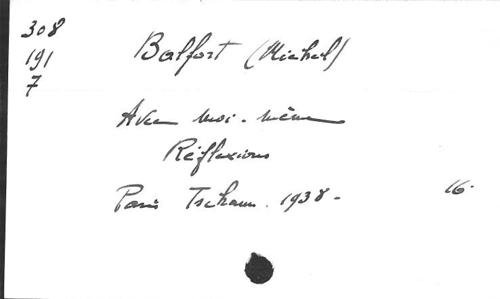 308
191
7
Balfort (Michel)
Avec moi-même
Réflexions
Paris Tschann. 1938 - 16.